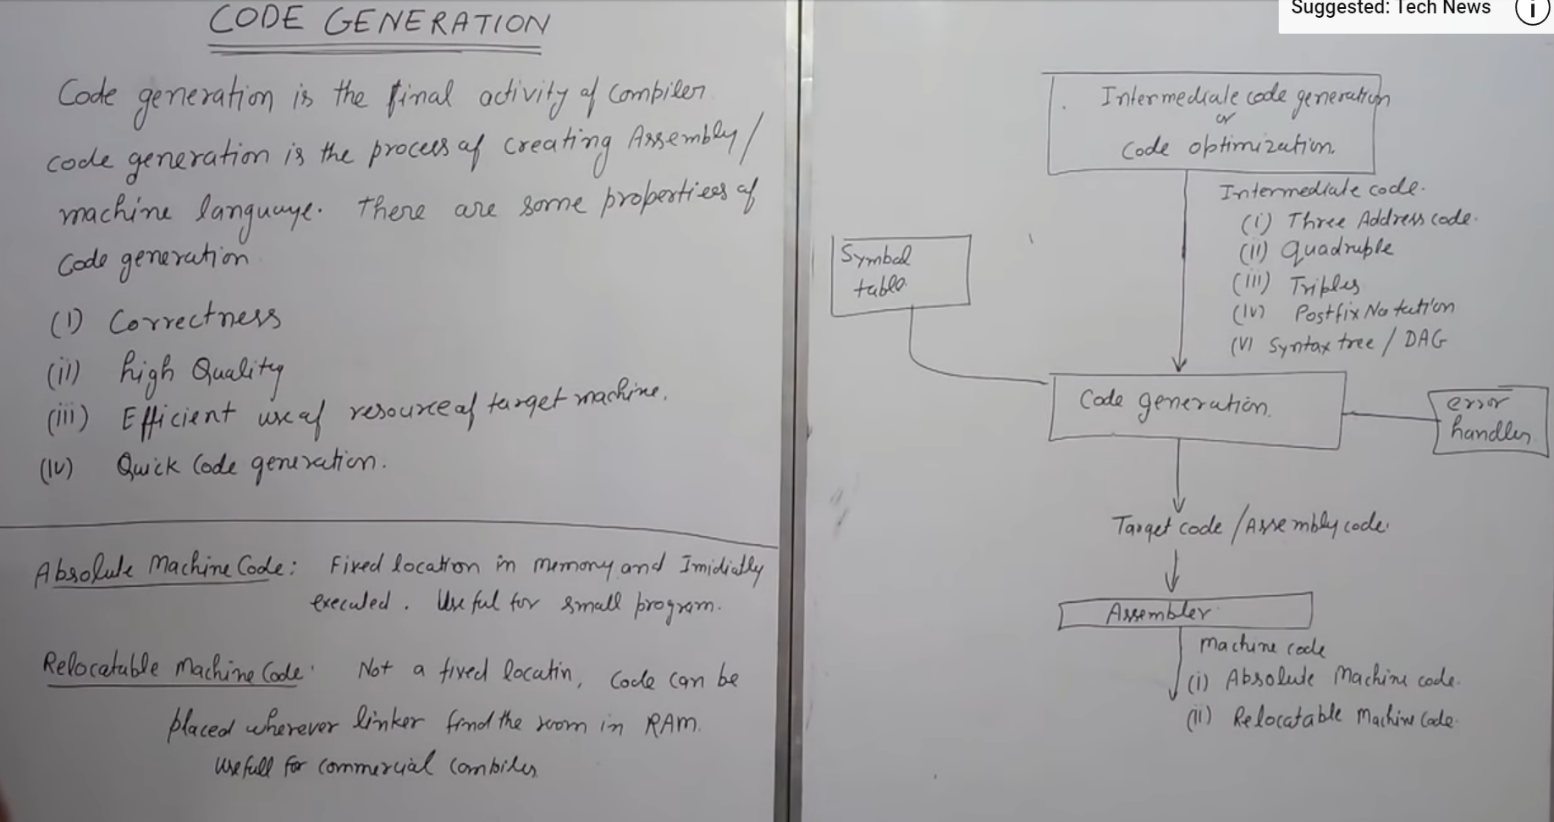 CODE GENERATION
Code generation is the final activity of compiler.
code generation is the process of creating Assembly/
machine language. There are some properties of
Code generation
(i) Correctness
(ii) high Quality
(iii) Efficient use of resource of target machine.
(iv) Quick Code generation.
Absolute Machine Code: Fixed location in memory and Imidiatly
executed. Useful for small program.
Relocatable Machine Code: Not a fixed locatin, Code can be
placed wherever linker find the room in RAM.
usefull for commercial compiler
Suggested: Tech News
Intermediate code generation
or
Code optimization.
Intermediate code.
(i) Three Address code.
(ii) Quadruple
(iii) Triples
(iv) Postfix Notation
(v) Syntax tree / DAG
Symbol
table
Code generation.
error
handler
Target code / Assembly code.
Assembler
Machine code
(i) Absolute Machine code.
(ii) Relocatable Machine Code.